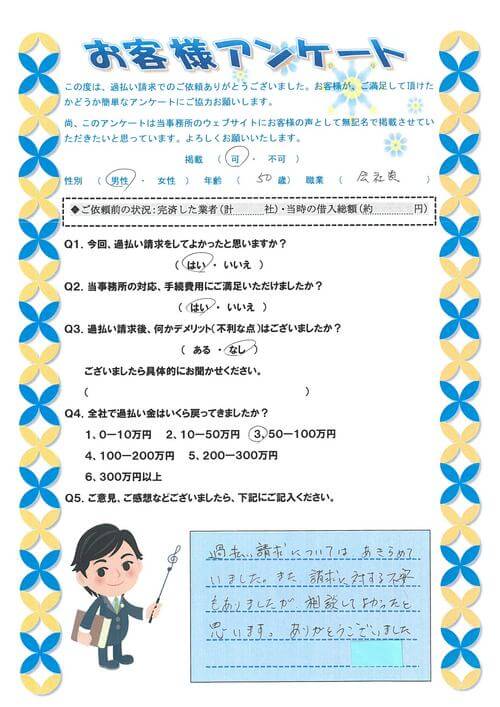 お客様アンケート
この度は、過払い請求でのご依頼ありがとうございました。お客様が、ご満足して頂けた
かどうか簡単なアンケートにご協力お願いします。
尚、このアンケートは当事務所のウェブサイトにお客様の声として無記名で掲載させてい
ただきたいと思っています。よろしくお願いいたします。
掲載 ( 可 ・ 不可 )
性別 ( 男性 ・ 女性 ) 年齢 ( 50 歳) 職業 ( 会社員 )
◆ご依頼前の状況:完済した業者(計 社)・当時の借入総額(約 円)
Q1. 今回、過払い請求をしてよかったと思いますか?
( はい ・ いいえ )
Q2. 当事務所の対応、手続費用にご満足いただけましたか?
( はい ・ いいえ )
Q3. 過払い請求後、何かデメリット(不利な点)はございましたか?
( ある ・ なし )
ございましたら具体的にお聞かせください。
( )
Q4. 全社で過払い金はいくら戻ってきましたか?
1、0-10万円 2、10-50万円 3、50-100万円
4、100-200万円 5、200-300万円
6、300万円以上
Q5. ご意見、ご感想などございましたら、下記にご記入ください。
過払い請求については あきらめて
いました。また 請求に対する不安
もありましたが 相談してよかったと
思います。ありがとうございました